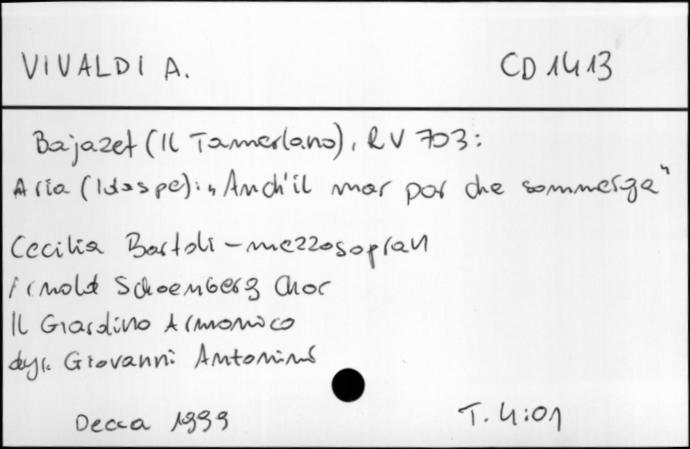 VIVALDI A. CD 1413
Bajazet (Il Tamerlano), RV 703:
Aria (Idaspe): „Anch'il mar par che sommerga"
Cecilia Bartoli - mezzosopran
Arnold Schoenberg Chor
Il Giardino Armonico
dyr. Giovanni Antonini
Decca 1999 T. 4:01